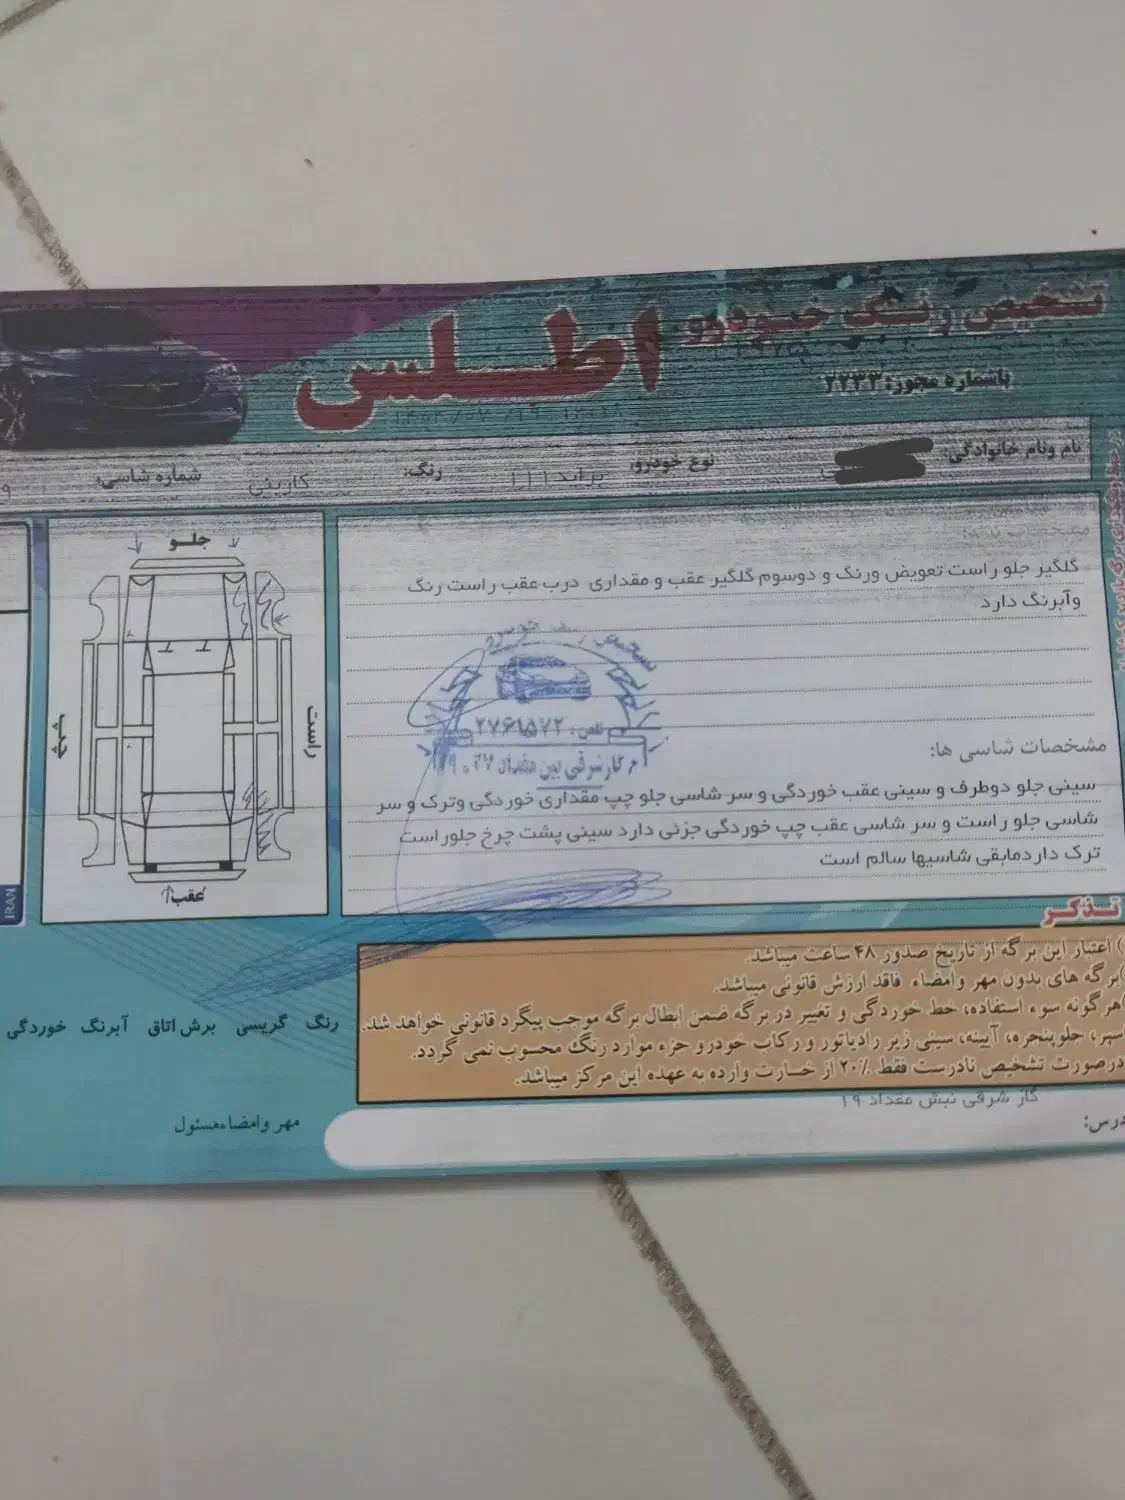 تشخیص رنگ خودرو اطلس
باشماره مجوز: ۲۲۳۳
نام ونام خانوادگی:
نوع خودرو: پراید۱۱۱
رنگ: کاربنی
شماره شاسی:
گلگیر جلو راست تعویض ورنگ و دوسوم گلگیر عقب و مقداری درب عقب راست رنگ
وآبرنگ دارد
مشخصات شاسی ها:
سینی جلو دوطرف و سینی عقب خوردگی و سر شاسی جلو چپ مقداری خوردگی وترک و سر
شاسی جلو راست و سر شاسی عقب چپ خوردگی جزئی دارد سینی پشت چرخ جلور است
ترک دارد مابقی شاسیها سالم است
جلو
چپ
راست
عقب
تشخیص رنگ خودرو
تلفن:
IRAN
تذکر
) اعتبار این برگه از تاریخ صدور ۴۸ ساعت میباشد.
)برگه های بدون مهر وامضاء فاقد ارزش قانونی میباشد.
)هرگونه سوء استفاده، خط خوردگی و تغییر در برگه ضمن ابطال برگه موجب پیگرد قانونی خواهد شد.
سپر، جلوپنجره، آیینه، سینی زیر رادیاتور و رکاب خودرو جزء موارد رنگ محسوب نمی گردد.
درصورت تشخیص نادرست فقط ۲۰٪ از خسارت وارده به عهده این مرکز میباشد.
رنگ گریسی برش اتاق آبرنگ خوردگی
گاز شرقی نبش مقداد ۱۹
مهر وامضاءمسئول